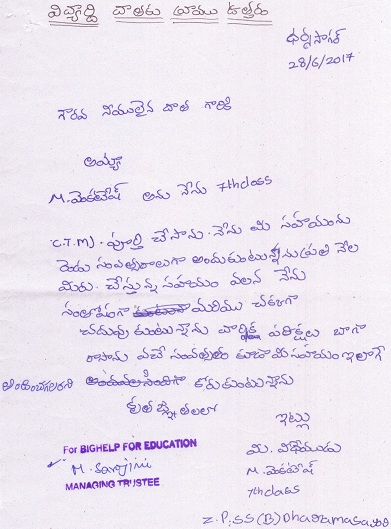 విద్యార్ది దాతకు వ్రాయు ఉత్తరం
ధర్మసాగర్
28/6/2017
గౌరవ నీయులైన దాత గారికి
అయ్యా
M. వెంకటేష్ అను నేను 7th class
C.T.M). పూర్తి చేసాను. నేను మి సహాయంను
రెండు సంవత్సరాలుగా అందుకుంటున్నాను ప్రతి నెల
మీరు చేస్తున్న సహాయం వలన నేను
సంతోషంగా మరియు చక్కగా
చదువు కుంటున్నాను వార్షిక పరిక్షలు బాగా
రాసాను వచే సంవత్సరం కూడా మి సహాయం ఇలాగే
అందించగలరని కోరుకుంటున్నాను
కృతజ్ఞతలతో
ఇట్లు
మి. విధేయుడు
M. వెంకటేష్
7th class
Z.P.SS (B) Dharmasagar
For BIGHELP FOR EDUCATION
M. Sarojini
MANAGING TRUSTEE